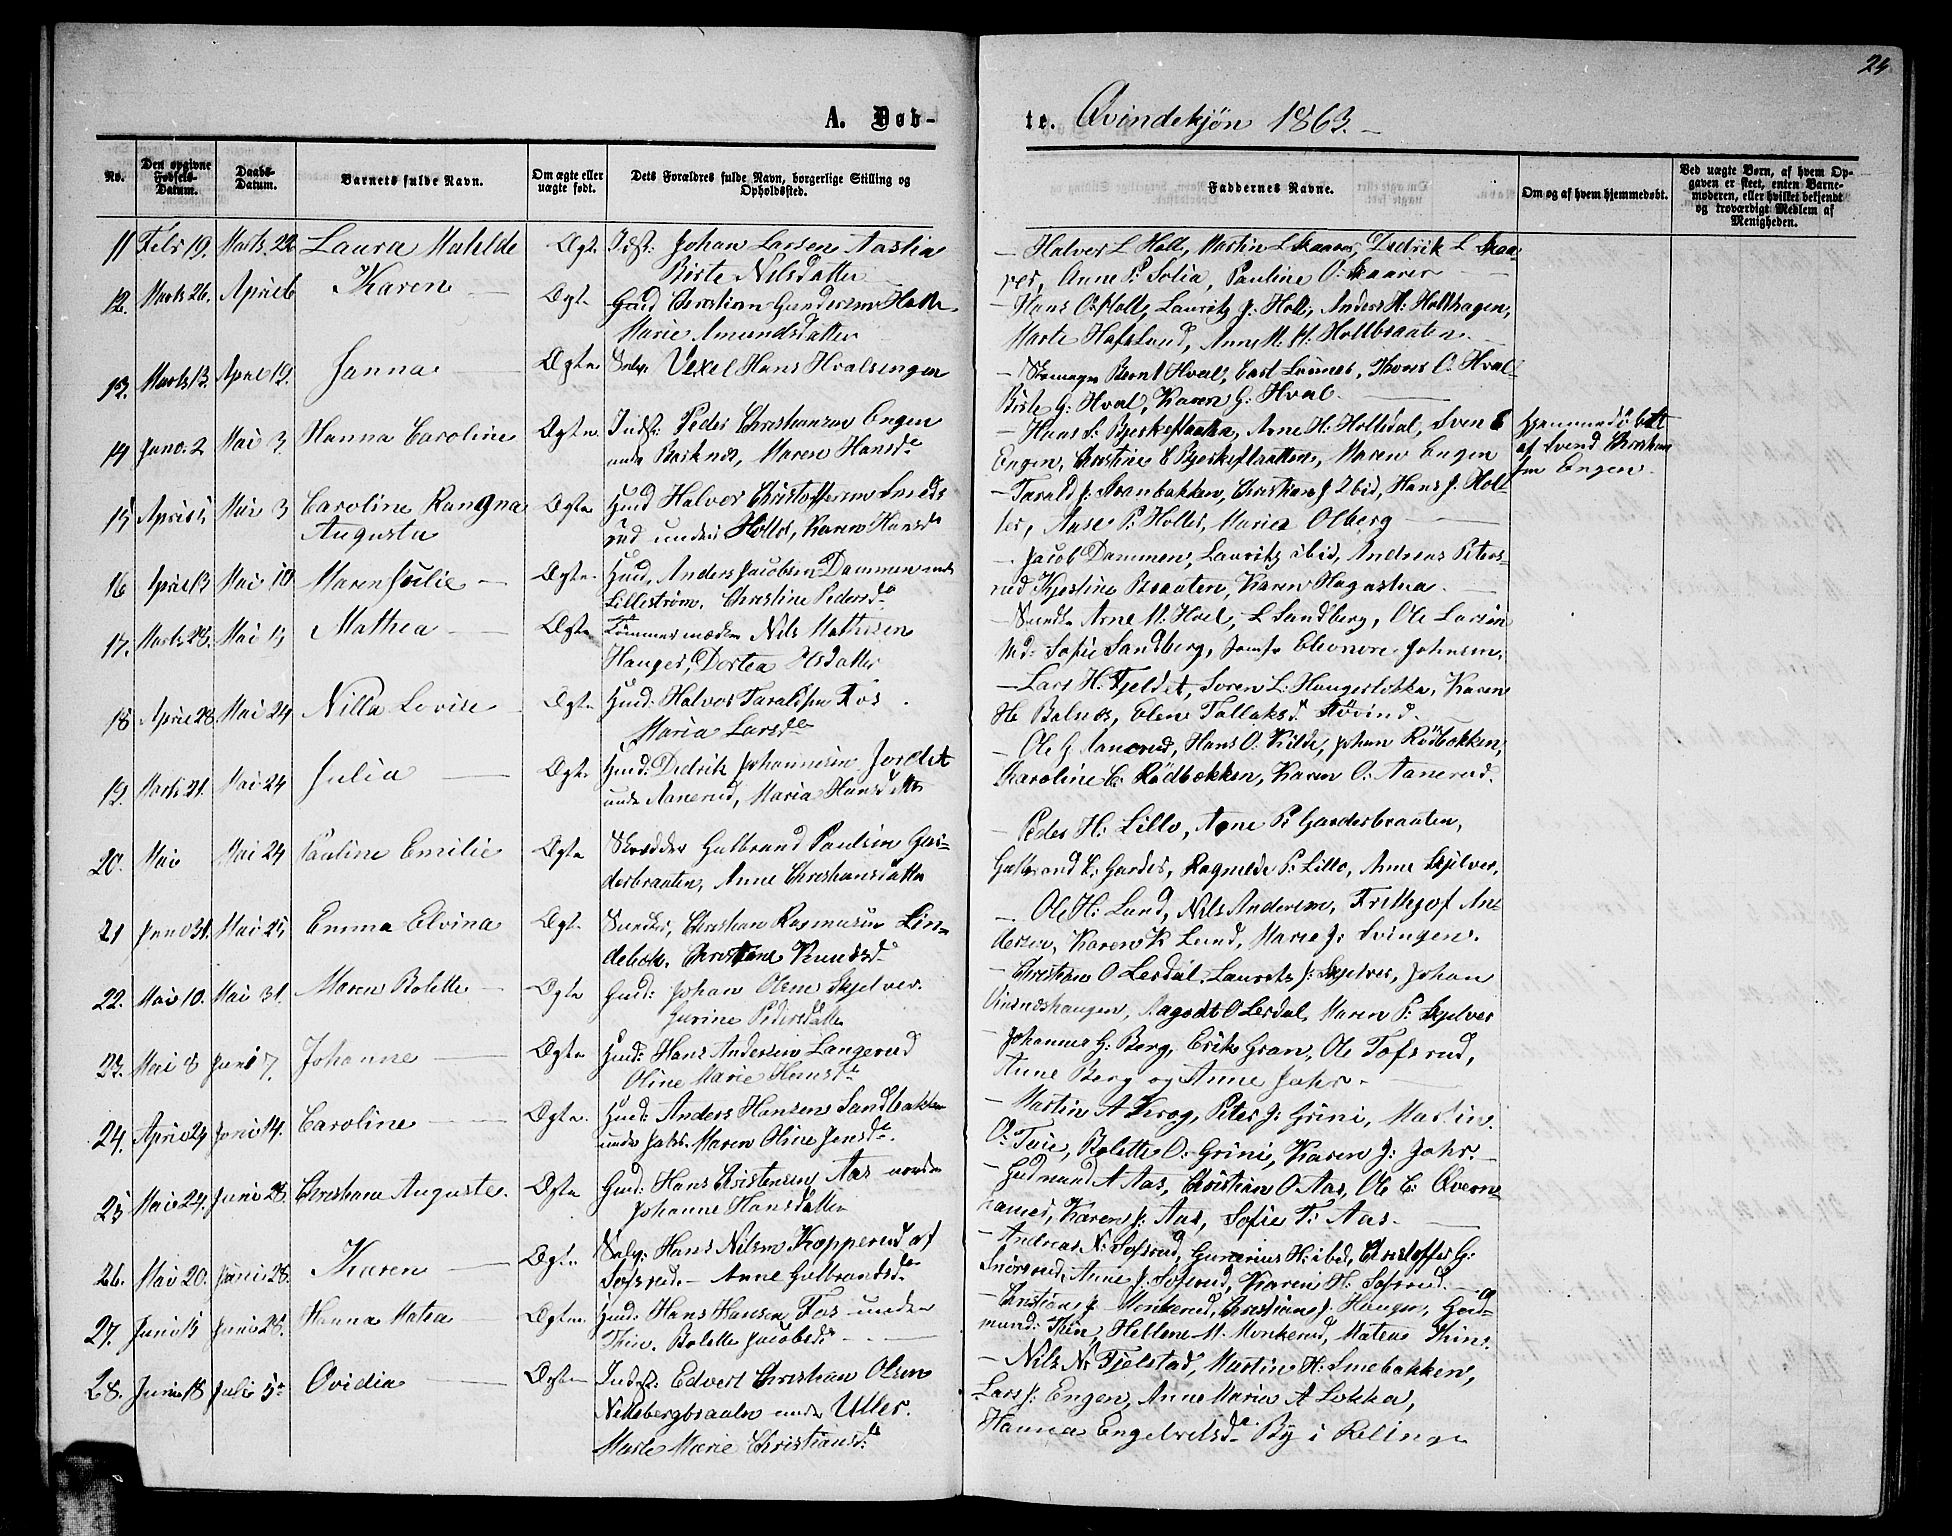 24
A. Døb-
te. Qvindekjøn 1863.
No.
Den opgivne Fødsels-Datum.
Daabs-Datum.
Barnets fulde Navn.
Om ægte eller uægte født.
Dets Forældres fulde Navn, borgerlige Stilling og Opholdssted.
Faddernes Navne.
Om og af hvem hjemmedøbt.
Ved uægte Børn, af hvem Opgaven er skeet, enten Barnemoderen, eller hvilket bekjendt og troværdigt Medlem af Menigheden.
11 Febr 19. Marts 22 Laura Mathilde Ægt. Indst: Johan Larsen
Birte Nilsdatter
— Halvor L Holl, Martin L Skaarer, Dedrik L Skaa
rer, Anne P: Solia, Pauline O: Skaarer
12. Marts 26. April 6 Karen Ægte Gmd Christian Gundersen Holl
Marie Amundsdatter
— Hans O: Holl, Lauritz J: Holl, Anders H: Hollhagen,
Marte Hafslund, Anne M. H: Hollbraaten
13. Marts 13. April 19. Hanna Ægte Selv: Vexel Hans Hvalsengen
— Skomager Bernt Hval, Hans O. Hval
Birte G: Hval, Karen G: Hval
14 Janr. 2 Mai 3. Hanna Caroline Ægte Indst: Peder Christiansen Engen
under Maren Hansd
— Hans S: Bjerkeflaatten, Arne H: Hollidal, Sven C
Engen, Christine C Bjerkeflaatten, Maren Engen
Hjemmedöbt
af Svend Christian
sen Engen
15 April 1, Mai 3 Caroline Rangna
Augusta
Ægte Gmd Halvor Christoffersen Smeds
rud under Holter, Karen Hansd
— Tarald J: Svanbakken, Christian J Ibid, Hans J: Hol-
ter, Aase P: Holter, Maria Olberg
16 April 13 Mai 10 Maren Julie Ægte Gmd, Anders Jacobsen Dammen und
Lillestrøm. Christine Pedersd
— Jacob Dammen, Lauritz ibid, Andreas Peters-
rud Kjestine Braaten, Karen Hagastua
17. Marts 28. Mai 15 Mathea Ægte Tømmermand Nils Mathisen
Hauger, Dortea
— Arne M. Hvel, L Sandberg, Ole Larsen
Md: Sofie Sandberg, Jomfr Eleonore Johnsen,
18 April 28 Mai 24 Nilla Lovise Ægte Gmd: Halvor Taraldsen Fos
Maria Larsd
— Lars H. Fjeldet, Soren L: Haugerlökka, Karen
H. Balnes, Elene Tallaksd Stövind.
19. Marts 21. Mai 24 Julia Ægte Gmd: Dedrik Johannesen Jordet
under Aanerud, Maria Hansdatter
— Ole G Aanerud, Hans O. Kilde, Johan Rödbökken,
Karoline C: Rödbökken, Karen O: Aanerud.
20. Mai Mai 24 Pauline Emilie Ægte Skrædder Gulbrand Paulsen Gar-
derbraaten, Anne Christiansdatter
— Peder H: Lillo, Arne P: Garderbraaten,
Gulbrand L: Garder, Ragnilde P: Lillo, Anne Skjelver,
21 Janr 31. Mai 25 Emma Elvina Ægt. Christian Rasmusen Lin-
dehol. Christiane Knudsd
— Ole H: Lund, Nils Andersen, Frithjof An-
dersen, Karen K Lund, Marie J: Svingen.
22. Mai 10. Mai 31. Maren Bolette Ægte Gmd: Johan Olsen Skjelver.
Gurine Pedersdatter
— Christian O Lerdal, Laurits J: Skjelver, Johan
Vinæshaugen, Aagodt O Lerdal, Maren P: Skjelver
23. Mai 8 Juni 7. Johanne Ægte Gmd: Hans Andersen Langerud
Oline Marie Hansd
— Johannes G: Berg, Erik Gran, Ole Tofsrud,
Anne Berg og Anne Jahr.
24. April 24 Juni 14. Caroline Ægte. Gmd: Anders Hansen Sandbakken
under Jahr. Maren Oline Jensd
— Martin A Krog, Peter J: Grini, Martin
O: Tuie, Bolette O: Grini, Karen J: Jahr.
25 Mai 24. Juni 28. Christiane Auguste. Ægte Gmd: Hans Christensen Aas
Johanne Hansdatter
— Gudmund A Aas, Christian O. Aas, Ole C: Qvern-
hamer, Karen J: Aas, Sofie T: Aas.
26. Mai 20. Juni 28. Karen Ægte. Selv: Hans Nilsen Kopperud af
Sofsrud. — Anne Gulbrandsd.
— Andreas N: Sofsrud, Gunerius H: ibid, Christoffer G:
Snörsrud, Anne J. Sofsrud, Karen H. Sofsrud.
27. Juni 15 Juni 28. Hanna Matea Ægte. Gmd: Hans Hansen Fos under
Thin. Bolette Jacobsd
— Christian J Monkerud, Christian J: Hauger, Gud-
mund: Thin, Hellene M. Monkerud, Matea Thin.
28. Juni 18 Juli 5 Ovidia Ægte Indst: Edvert Christian Olsen
Nittebergbraaten under Uller.
Marte Marie Christiansd:
— Nils N: Fjelstad, Martin H: Smebakken,
Lars J: Engen, Anne Maria A Lökka,
Hanna Engelretsd By i Relinge